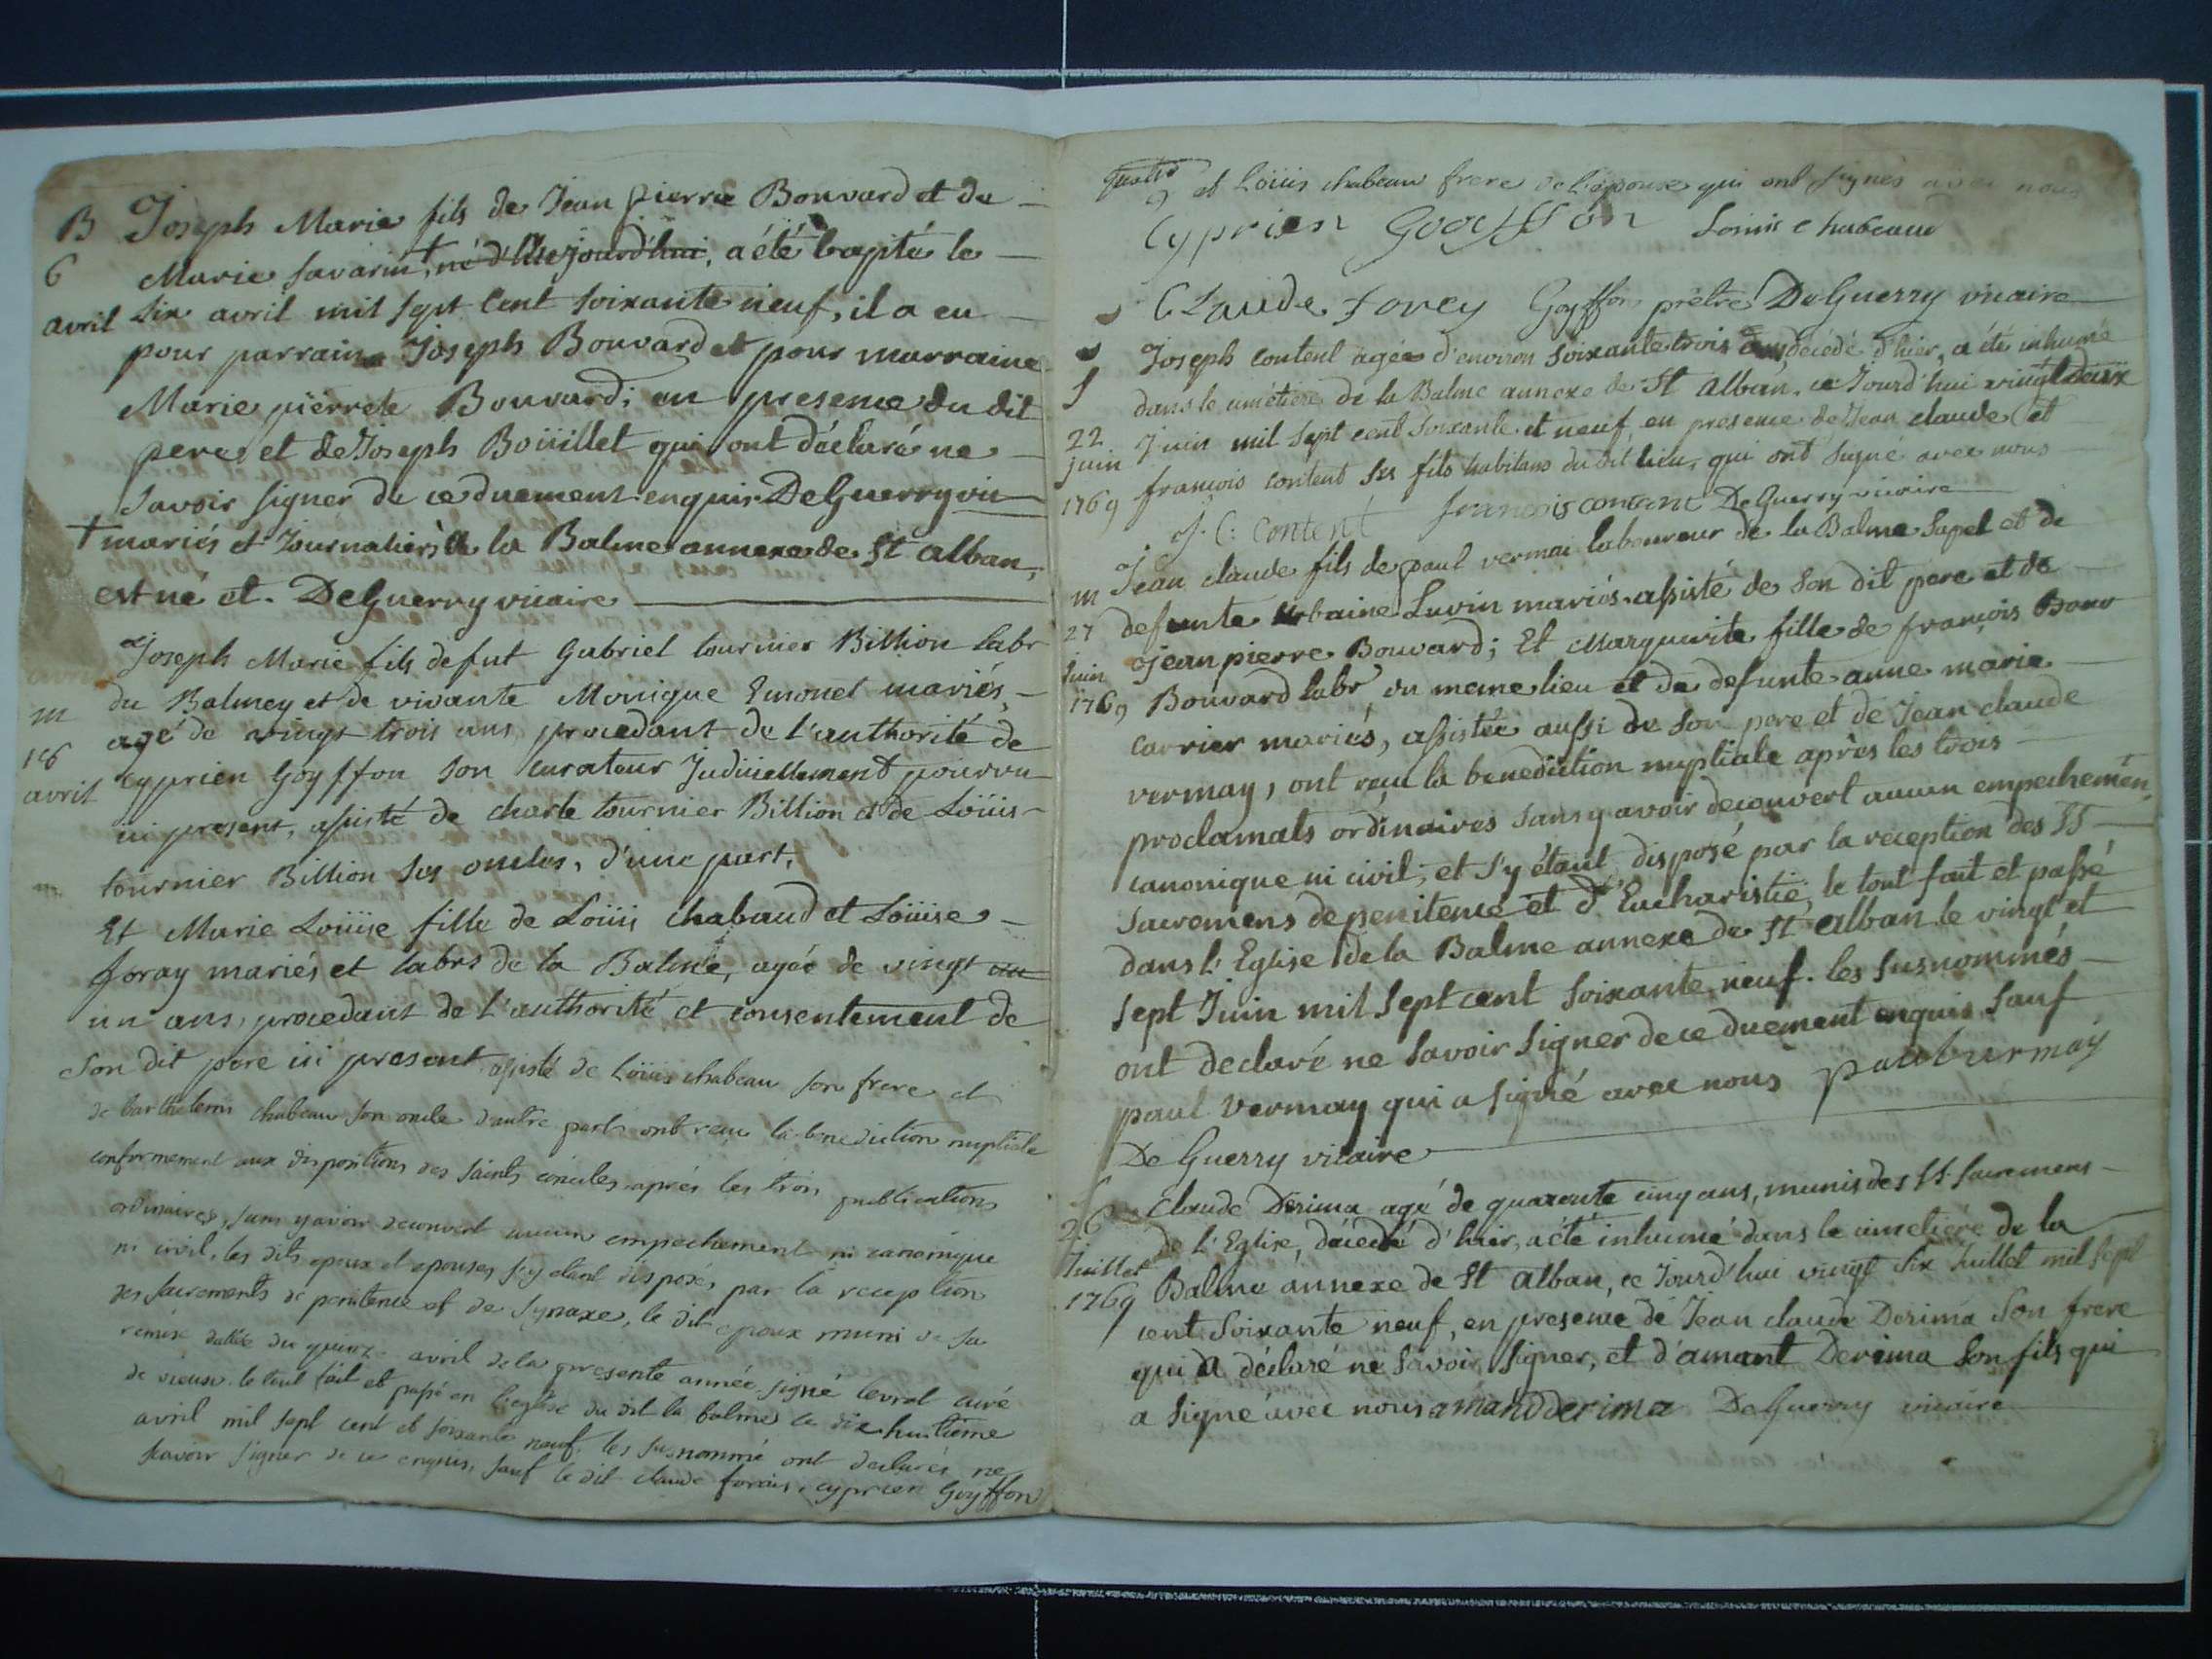 B Joseph Marie fils de Jean pierre Bouvard et de
6 Marie Savarin, + né d'Aujourd'hui, a été baptisé le
avril six avril mil sept cent soixante neuf, il a eu
pour parrain Joseph Bouvard et pour marraine
Marie pierrete Bouvard; en presence du dit
pere et de Joseph Boüillet qui ont déclaré ne
savoir signer de ce duement enquis. DeGuerry vic
+ mariés et Journaliers de la Balme annexe de St alban,
est né et. DeGuerry vicaire
Joseph Marie fils de fut Gabriel tournier Billion labr
du Balmey et de vivante Monique Emonet mariés,
m agé de vingt trois ans procedant de l'authorité de
18 avril Cyprien Goyffon son curateur Judiciellement pourvu
ici present, assisté de charle tournier Billion et de Loüis
tournier Billion ses oncles, d'une part,
Et Marie Loüise fille de Loüis Chabaud et Loüise
foray mariés et labrs de la Balme, agée de vingt un
un ans, procedant de l'authorité et consentement de
Son dit pere ici present assisté de Loüis chabeau son frere et
de barthelemi chabeau son oncle d'autre part ont reçu la benediction nuptiale
conformement aux dispositions des saints conciles après les trois publications
ordinaires, sans y avoir decouvert aucun empechement ni canonique
ni civil, les dits epoux et epouses s'y etant disposés par la reception
des sacrements de penitence et de Synaxe, le dit epoux muni de sa
remise dattée du quinze avril de la presente année signé levrat curé
de vieux. le tout fait et passé en l'eglise du dit la balme ce dixhuitieme
avril mil sept cent et soixante neuf. les susnommé ont declarés ne
scavoir signer de ce enquis, sauf le dit claude forais, cyprien Goyffon
et Loüis chabeau frere de l'épouse qui ont signés avec nous
Cyprien Goyffon Louis chabeaud
Claude forey Goyffon prêtre DeGuerry vicaire
Joseph content agée d'environ soixante trois ans, décédé d'hier, a été inhumé
S dans le cimetiere de la Balme annexe de St alban, ce Jourd'hui vingt deux
22 juin Juin mil sept cent soixante et neuf, en presence de Jean claude et
1769 françois content ses fils habitans du dit lieu, qui ont signé avec nous
J. C: content francois contant DeGuerry vicaire
m Jean claude fils de paul vermai laboureur de la Balme Sapel et de
27 defunte Urbaine Luvin mariés assisté de son dit pere et de
Juin Jean pierre Bouvard; Et Marguerite fille de françois Bouv
1769 Bouvard labr du meme lieu et de defunte anne marie
carrier mariés, assistée aussi de son pere et de Jean claude
vermay, ont reçu la benediction nuptiale après les trois
proclamats ordinaires sans y avoir decouvert aucun empechemen
canonique ni civil; et s'y étant disposé par la reception des SS
sacremens de penitence et d'Eucharistie, le tout fait et passé
dans l'Eglise de la Balme annexe de St alban le vingt et
sept Juin mil sept cent soixante neuf. les susnommés
ont declaré ne savoir signer de ce duement enquis sauf
paul vermay qui a signé avec nous paul vermay
De Guerry vicaire
S claude Derima agé de quarante cinq ans, munis des SS. sacremens
26 de l'Eglise, décédé d'hier, a été inhumé dans le cimetiére de la
Juillet Balme annexe de St alban, ce Jourd'hui vingt six Juillet mil sept
1769 cent soixante neuf, en presence de Jean claude Derima son frere
qui a déclaré ne savoir signer, et d'amant Derima son fils qui
a signé avec nous amand derima DeGuerry vicaire